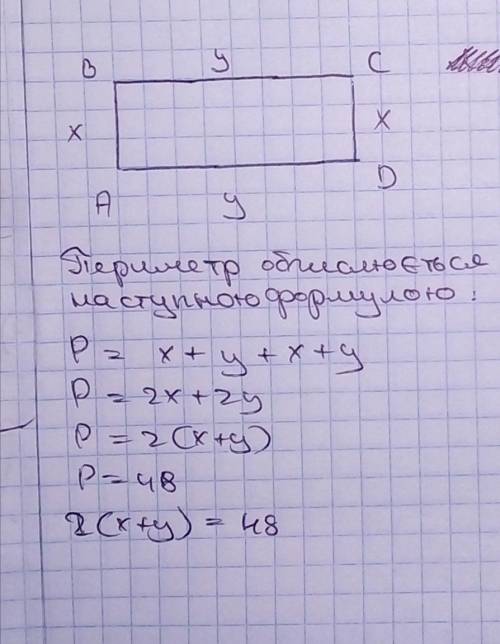 B y C
x x
A y D
Периметр обчислюється
наступною формулою:
P = x + y + x + y
P = 2x + 2y
P = 2(x+y)
P = 48
2(x+y) = 48